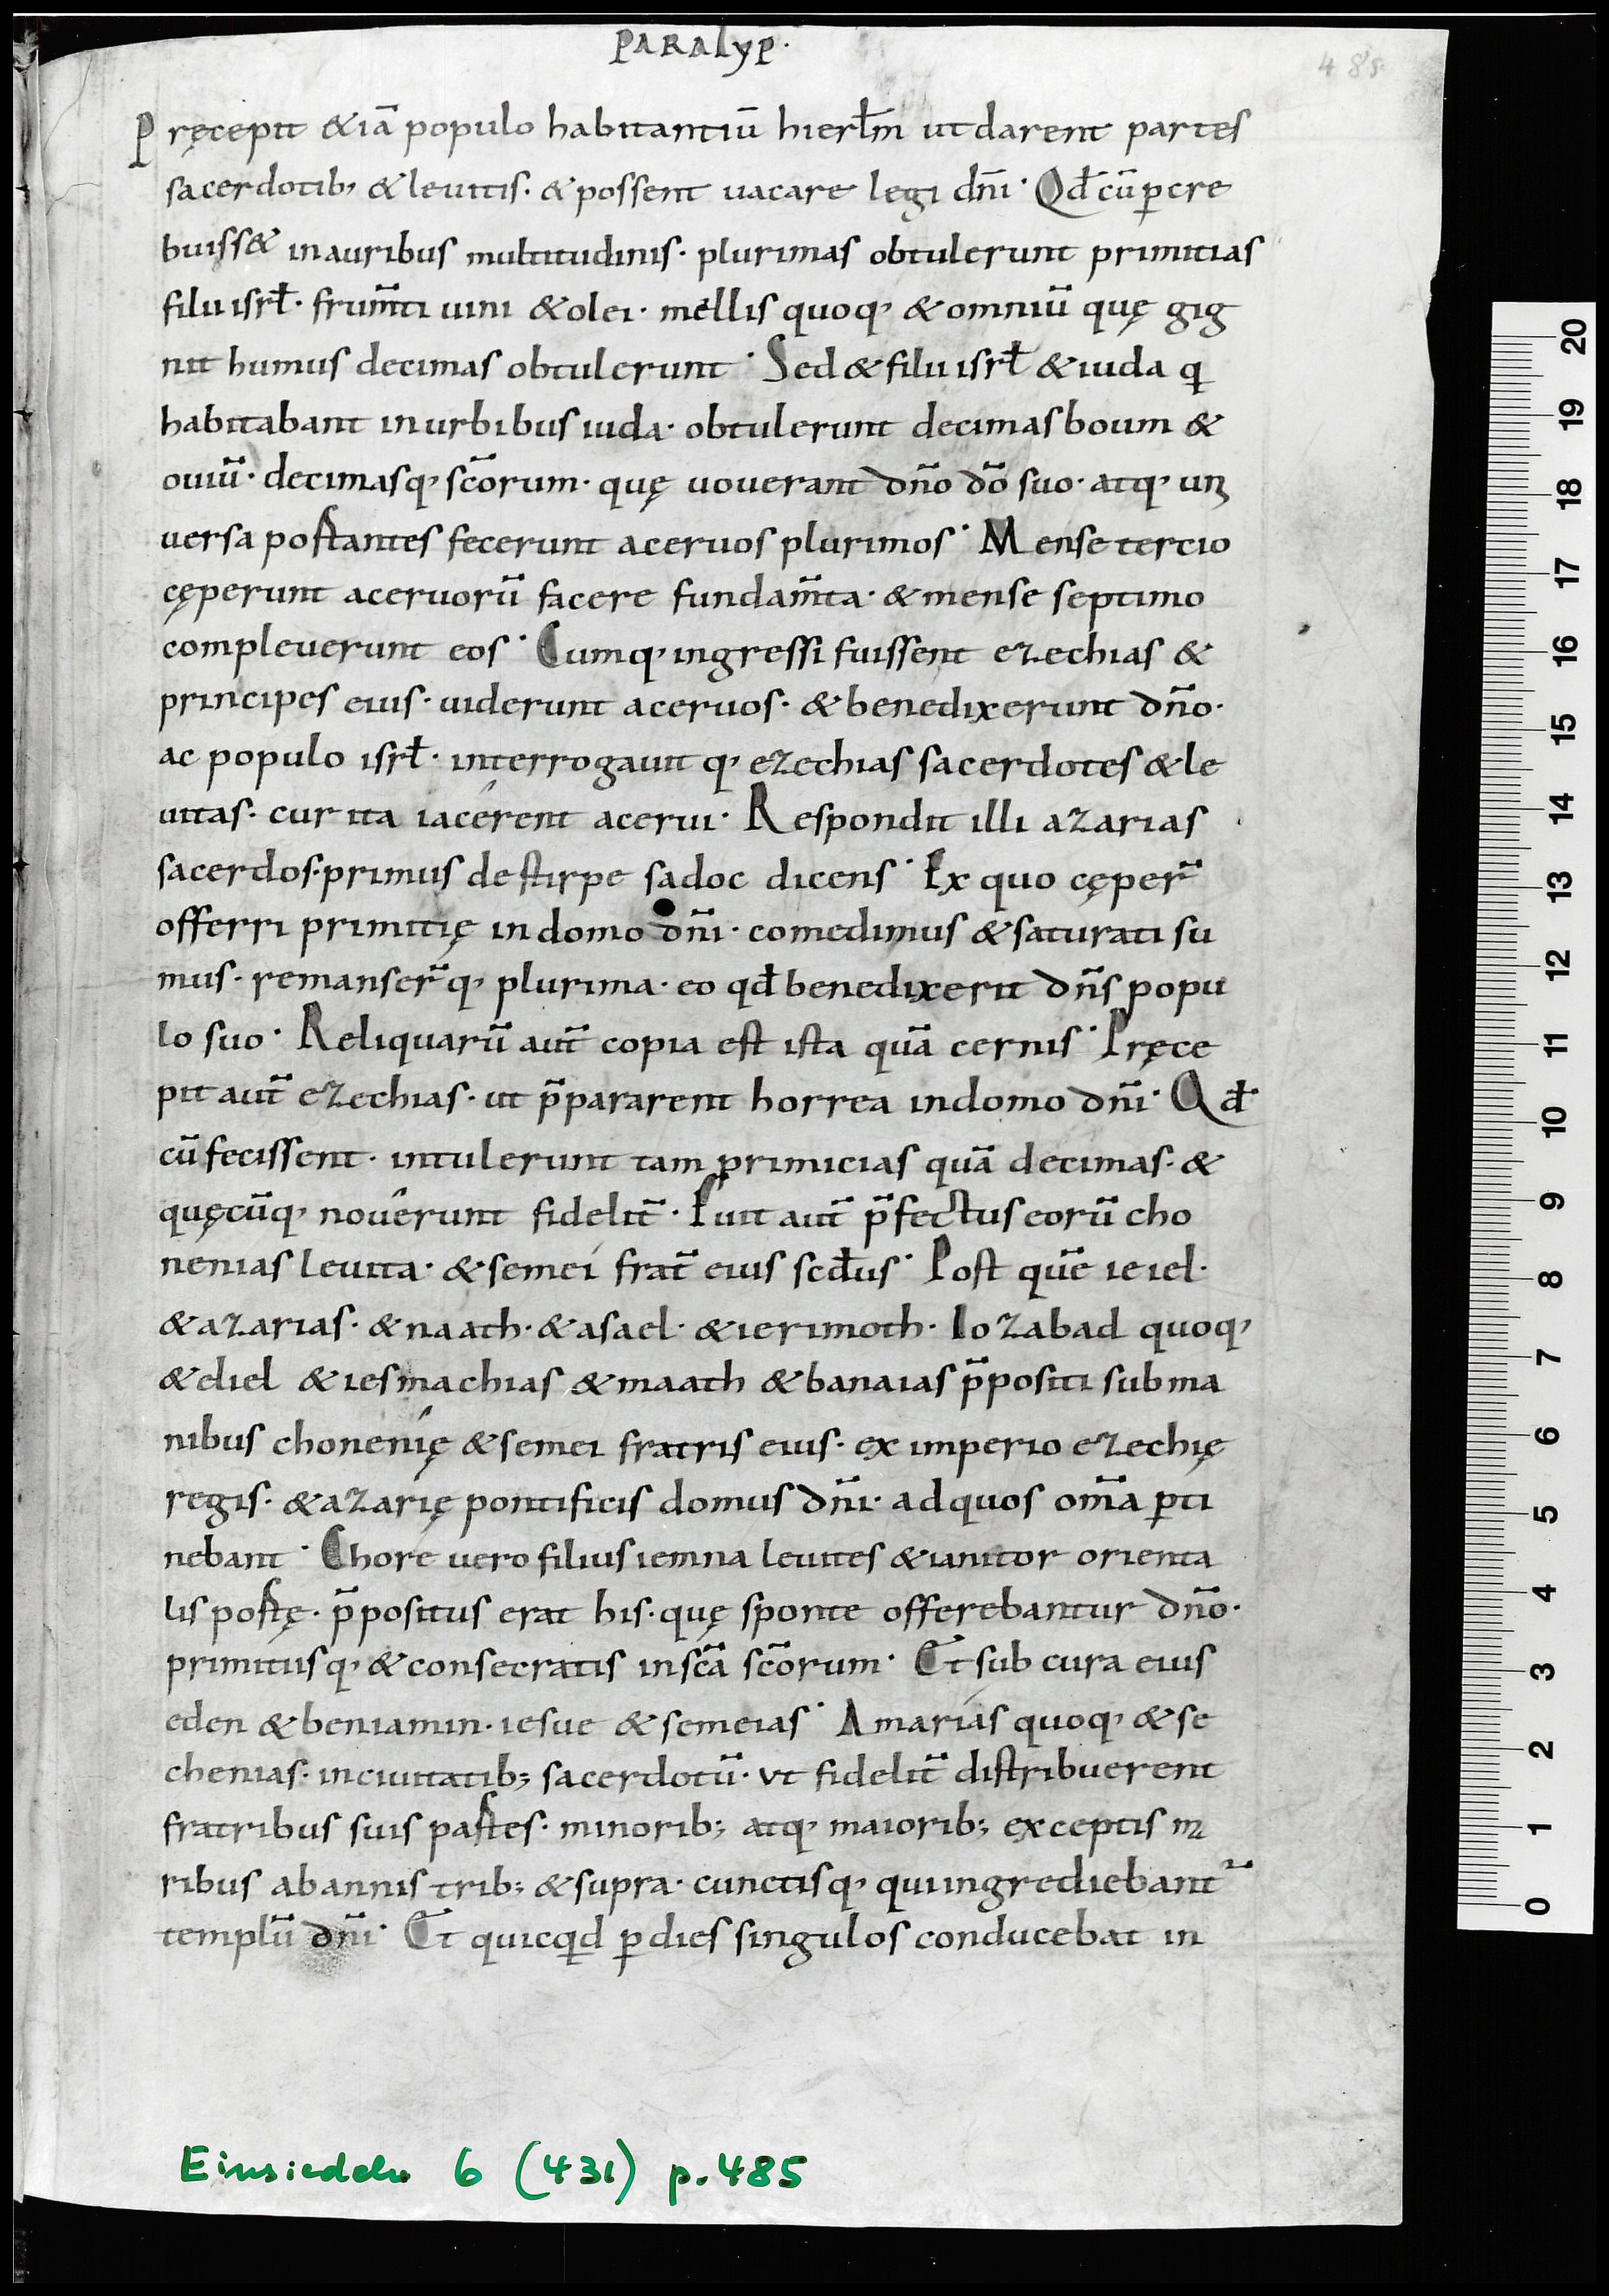 PARALYP·
485
Pręcepit &iā populo habitantiū hierl̄m ut darent partes
sacerdotib, & leuitis· & possent uacare legi dn̄i· Qđ cū ꝑcre
buiss& in auribus multitudinis· plurimas obtulerunt primitias
filii isrł· frum̄ti uini & olei· mellis quoq, & omniū quę gig
nit humus decimas obtulerunt· Sed & filii isrł & iuda q
habitabant in urbibus iuda· obtulerunt decimas boum &
ouiū· decimasq, sc̄orum· quę uouerant dn̄o dō suo· atq, uni
uersa portantes fecerunt aceruos plurimos· Mense tercio
cęperunt aceruorū facere fundam̄ta· & mense septimo
compleuerunt eos· Cumq, ingressi fuissent ezechias &
principes eius· uiderunt aceruos· & benedixerunt dn̄o·
ac populo isrł· interrogauit q, ezechias sacerdotes & le
uitas· cur ita iacérent acerui· Respondit illi azarias
sacerdos· primus de stirpe sadoc dicens· Ex quo cęper̄
offerri primitię in domo dn̄i· comedimus & saturati su
mus· remanser̄q, plurima· eo qđ benedixerit dn̄s popu
lo suo· Reliquarū aut̄ copia est ista quā cernis· Pręce
pit aut̄ ezechias· ut p̄pararent horrea in domo dn̄i· Qđ
cū fecissent· intulerunt tam primicias quā decimas· &
quęcūq, nouerunt fidelit̄· Fuit aut̄ p̄fectus eorū cho
nenias leuita· & semeí frat̄ eius scđus· Post quē ieiel·
& azarias· & naath· & asael· & ierimoth· Iozabad quoq,
& eliel & iesmachias & maath & banaias p̄positi sub ma
nibus chonenię & semei fratris eius· ex imperio ezechię
regis· & azarię pontificis domus dn̄i· ad quos om̄a ꝑti
nebant· Chore uero filius iemna leuites & ianitor orienta
lis portę· p̄positus erat his· quę sponte offerebantur dn̄o·
primitusq, & consecratis in sc̄a sc̄orum· Et sub cura eius
eden & beniamin· iesue & semeias· Amarías quoq, & se
chenias· in ciuitatib; sacerdotū· ut fidelit̄ distribuerent
fratribus suis partes· minorib; atq, maiorib; exceptis ma
ribus ab annis trib; & supra· cunctisq, qui ingrediebant̄
templū dn̄i· Et quicqd ꝑ dies singulos conducebat in
Einsiedeln 6 (431) p. 485
20
19
18
17
16
15
14
13
12
11
10
9
8
7
6
5
4
3
2
1
0